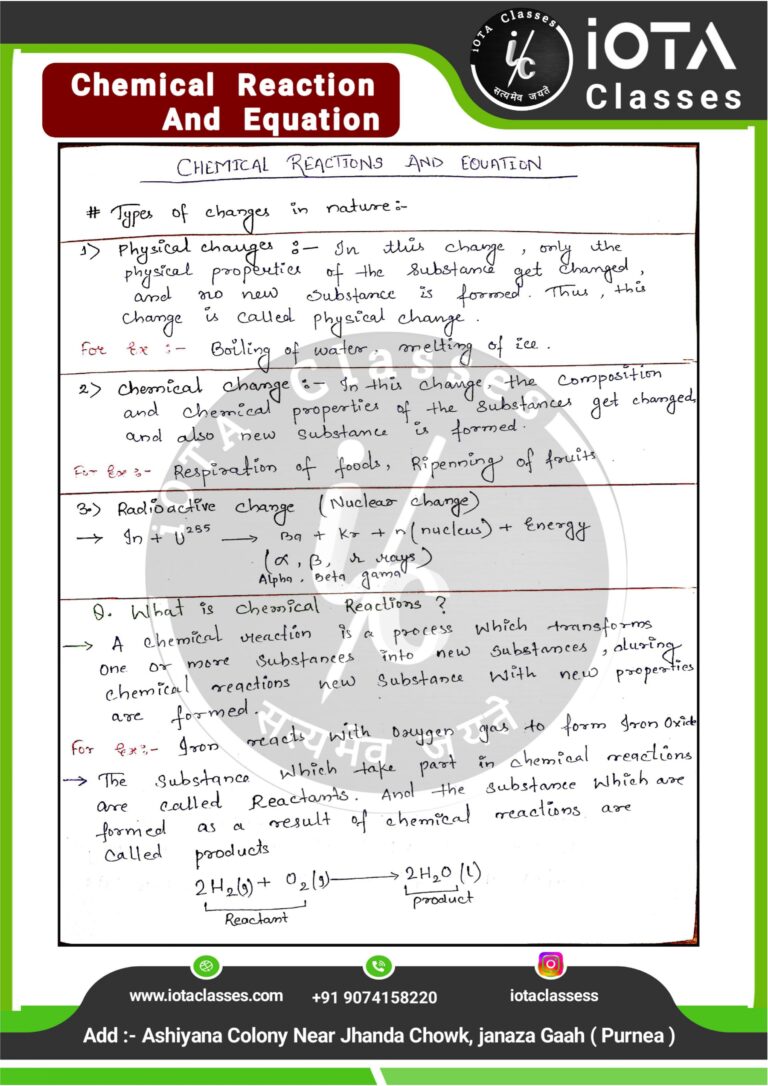 iOTA Classes
i/c
सत्यमेव जयते
iOTA
Classes
Chemical Reaction
And Equation
CHEMICAL REACTIONS AND EQUATION
# Types of changes in nature:-
1) Physical changes :- In this change, only the
physical properties of the substance get changed,
and no new substance is formed. Thus, this
change is called physical change.
For Ex :- Boiling of water, melting of ice.
2) Chemical change :- In this change, the composition
and chemical properties of the substances get changed,
and also new substance is formed.
For Ex :- Respiration of foods, Ripenning of fruits.
3.) Radioactive change (Nuclear change)
→ In + U²³⁵ ⟶ Ba + Kr + n(nucleus) + Energy
(α, β, r rays)
Alpha, Beta gama
Q. What is Chemical Reactions ?
→ A chemical reaction is a process which transforms
one or more substances into new substances, during
chemical reactions new substance with new properties
are formed.
For Ex:- Iron reacts with oxygen gas to form Iron Oxide
→ The substance which take part in chemical reactions
are called Reactants. And the substance which are
formed as a result of chemical reactions are
called products
2H₂(g) + O₂(g) ⟶ 2H₂O (l)
Reactant product
iOTA Classes
i/c
सत्यमेव जयते
www.iotaclasses.com +91 9074158220 iotaclassess
Add :- Ashiyana Colony Near Jhanda Chowk, janaza Gaah ( Purnea )